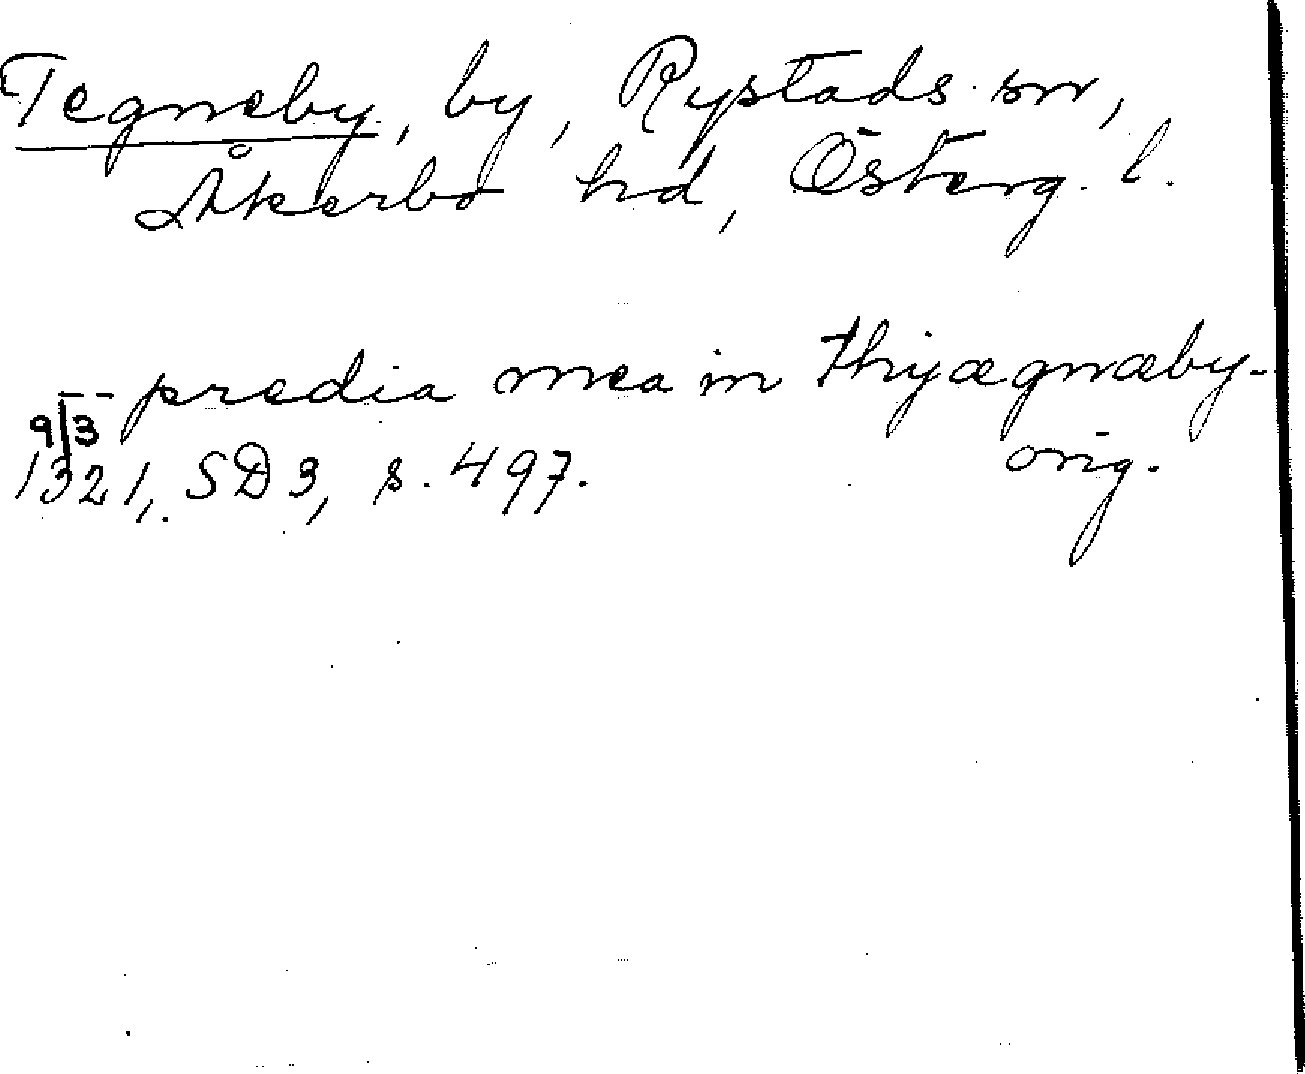 Tegneby, by, Rystads sn,
Åkerbo hd, Österg. l.
-- predia mea in thyægnæby -
9/3
1321, SD 3, s. 497.
orig.